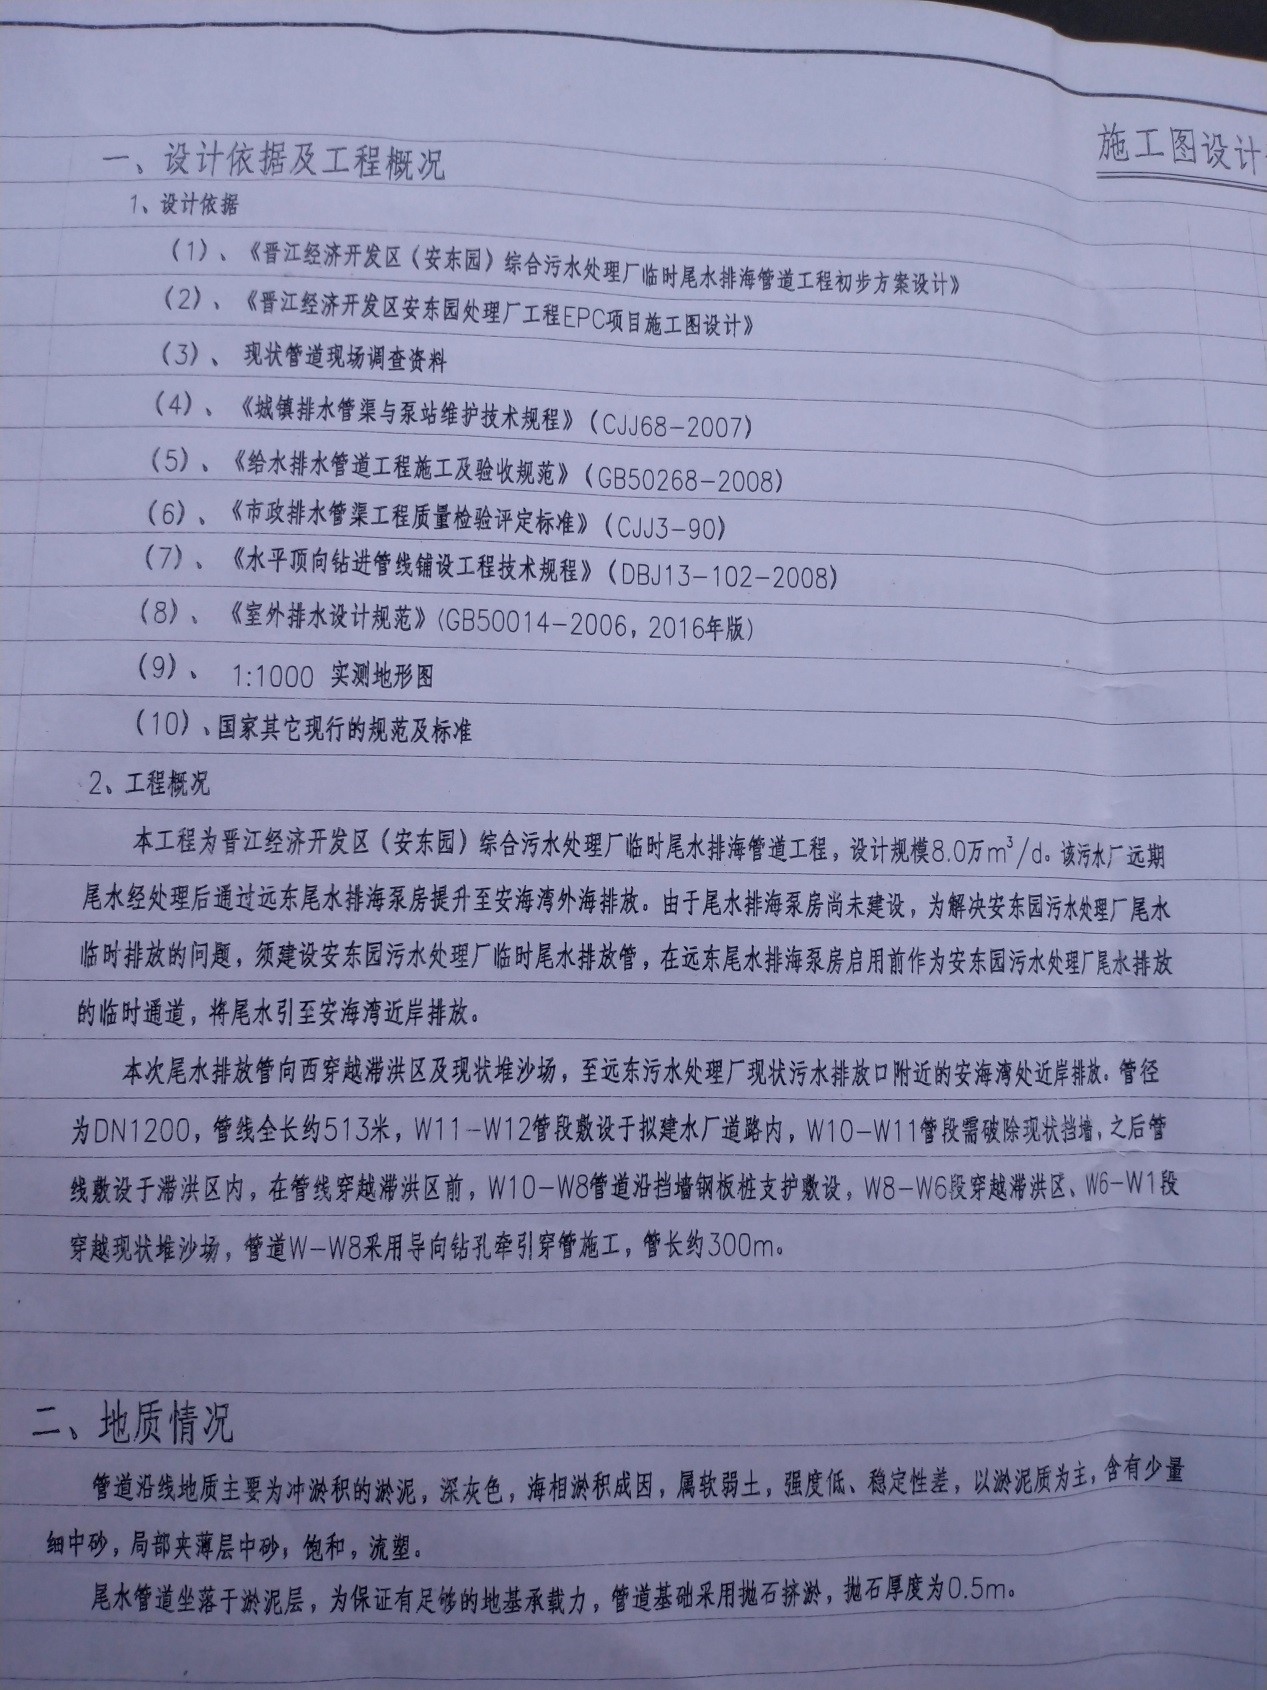 施工图设计
一、设计依据及工程概况
1、设计依据
(1)、《晋江经济开发区(安东园)综合污水处理厂临时尾水排海管道工程初步方案设计》
(2)、《晋江经济开发区安东园处理厂工程EPC项目施工图设计》
(3)、现状管道现场调查资料
(4)、《城镇排水管渠与泵站维护技术规程》(CJJ68-2007)
(5)、《给水排水管道工程施工及验收规范》(GB50268-2008)
(6)、《市政排水管渠工程质量检验评定标准》(CJJ3-90)
(7)、《水平顶向钻进管线铺设工程技术规程》(DBJ13-102-2008)
(8)、《室外排水设计规范》(GB50014-2006，2016年版)
(9)、1:1000 实测地形图
(10)、国家其它现行的规范及标准
2、工程概况
本工程为晋江经济开发区(安东园)综合污水处理厂临时尾水排海管道工程，设计规模8.0万m³/d。该污水厂远期
尾水经处理后通过远东尾水排海泵房提升至安海湾外海排放。由于尾水排海泵房尚未建设，为解决安东园污水处理厂尾水
临时排放的问题，须建设安东园污水处理厂临时尾水排放管，在远东尾水排海泵房启用前作为安东园污水处理厂尾水排放
的临时通道，将尾水引至安海湾近岸排放。
本次尾水排放管向西穿越滞洪区及现状堆沙场，至远东污水处理厂现状污水排放口附近的安海湾处近岸排放。管径
为DN1200，管线全长约513米，W11-W12管段敷设于拟建水厂道路内，W10-W11管段需破除现状挡墙、之后管
线敷设于滞洪区内，在管线穿越滞洪区前，W10-W8管道沿挡墙钢板桩支护敷设，W8-W6段穿越滞洪区、W6-W1段
穿越现状堆沙场，管道W-W8采用导向钻孔牵引穿管施工，管长约300m。
二、地质情况
管道沿线地质主要为冲淤积的淤泥，深灰色，海相淤积成因，属软弱土，强度低、稳定性差，以淤泥质为主，含有少量
细中砂，局部夹薄层中砂，饱和，流塑。
尾水管道坐落于淤泥层，为保证有足够的地基承载力，管道基础采用抛石挤淤，抛石厚度为0.5m。